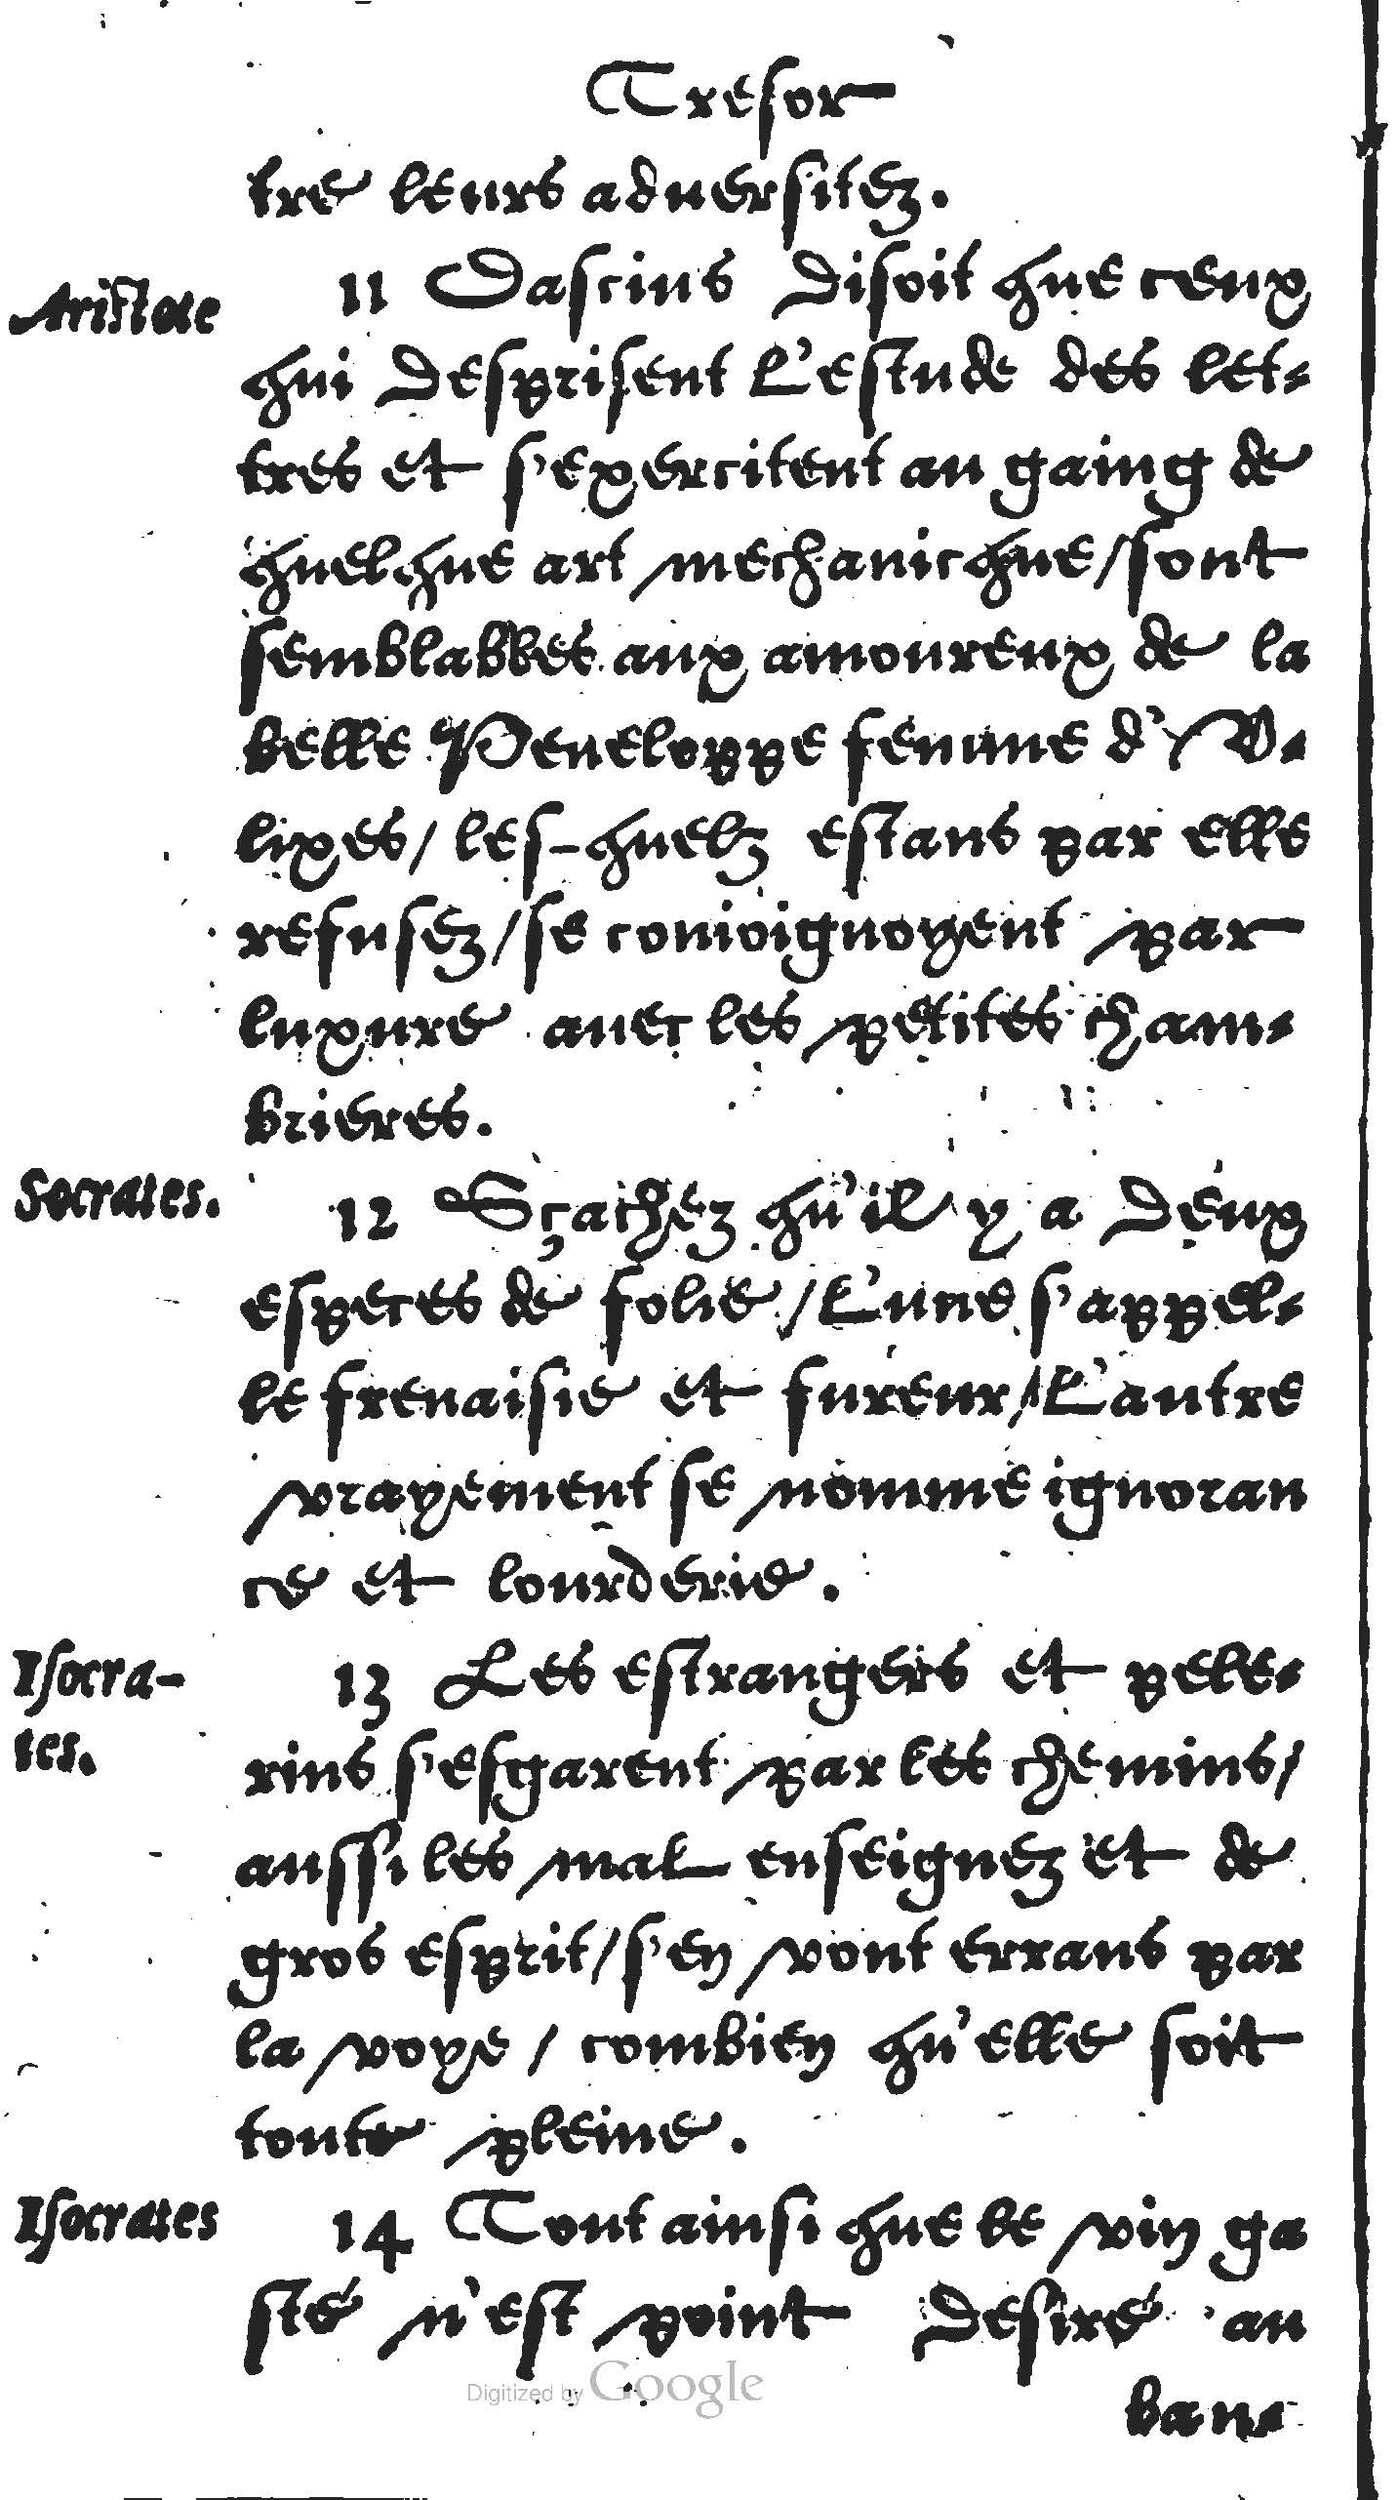 Tresor
tre leurs aduersitez.
Aristote
11 Dascius disoit que ceux
qui desprisent l'estude des let-
tres et s'exercitent au gaing de
quelque art mechanicque/sont
semblables aux amoureux de la
belle Peneloppe femme d'V-
lixes/ les-quelz estans par elle
refusez/se conioignoyent par
luxure auec les petites cham-
brieres.
Socrates.
12 Sçachez qu'il y a deux
especes de folie/L'une s'appel-
le frenaisie et fureur/L'autre
vrayement se nomme ignoran
ce et lourderie.
Isocra-
tes.
13 Les estrangers et pele-
rins s'esgarent par les chemins/
aussi les mal enseignez et de
gros esprit/s'en vont errans par
la voye / combien qu'elle soit
toute pleine.
Isocrates
14 Tout ainsi que le vin ga
sté n'est point desiré au
ban-
Digitized by Google